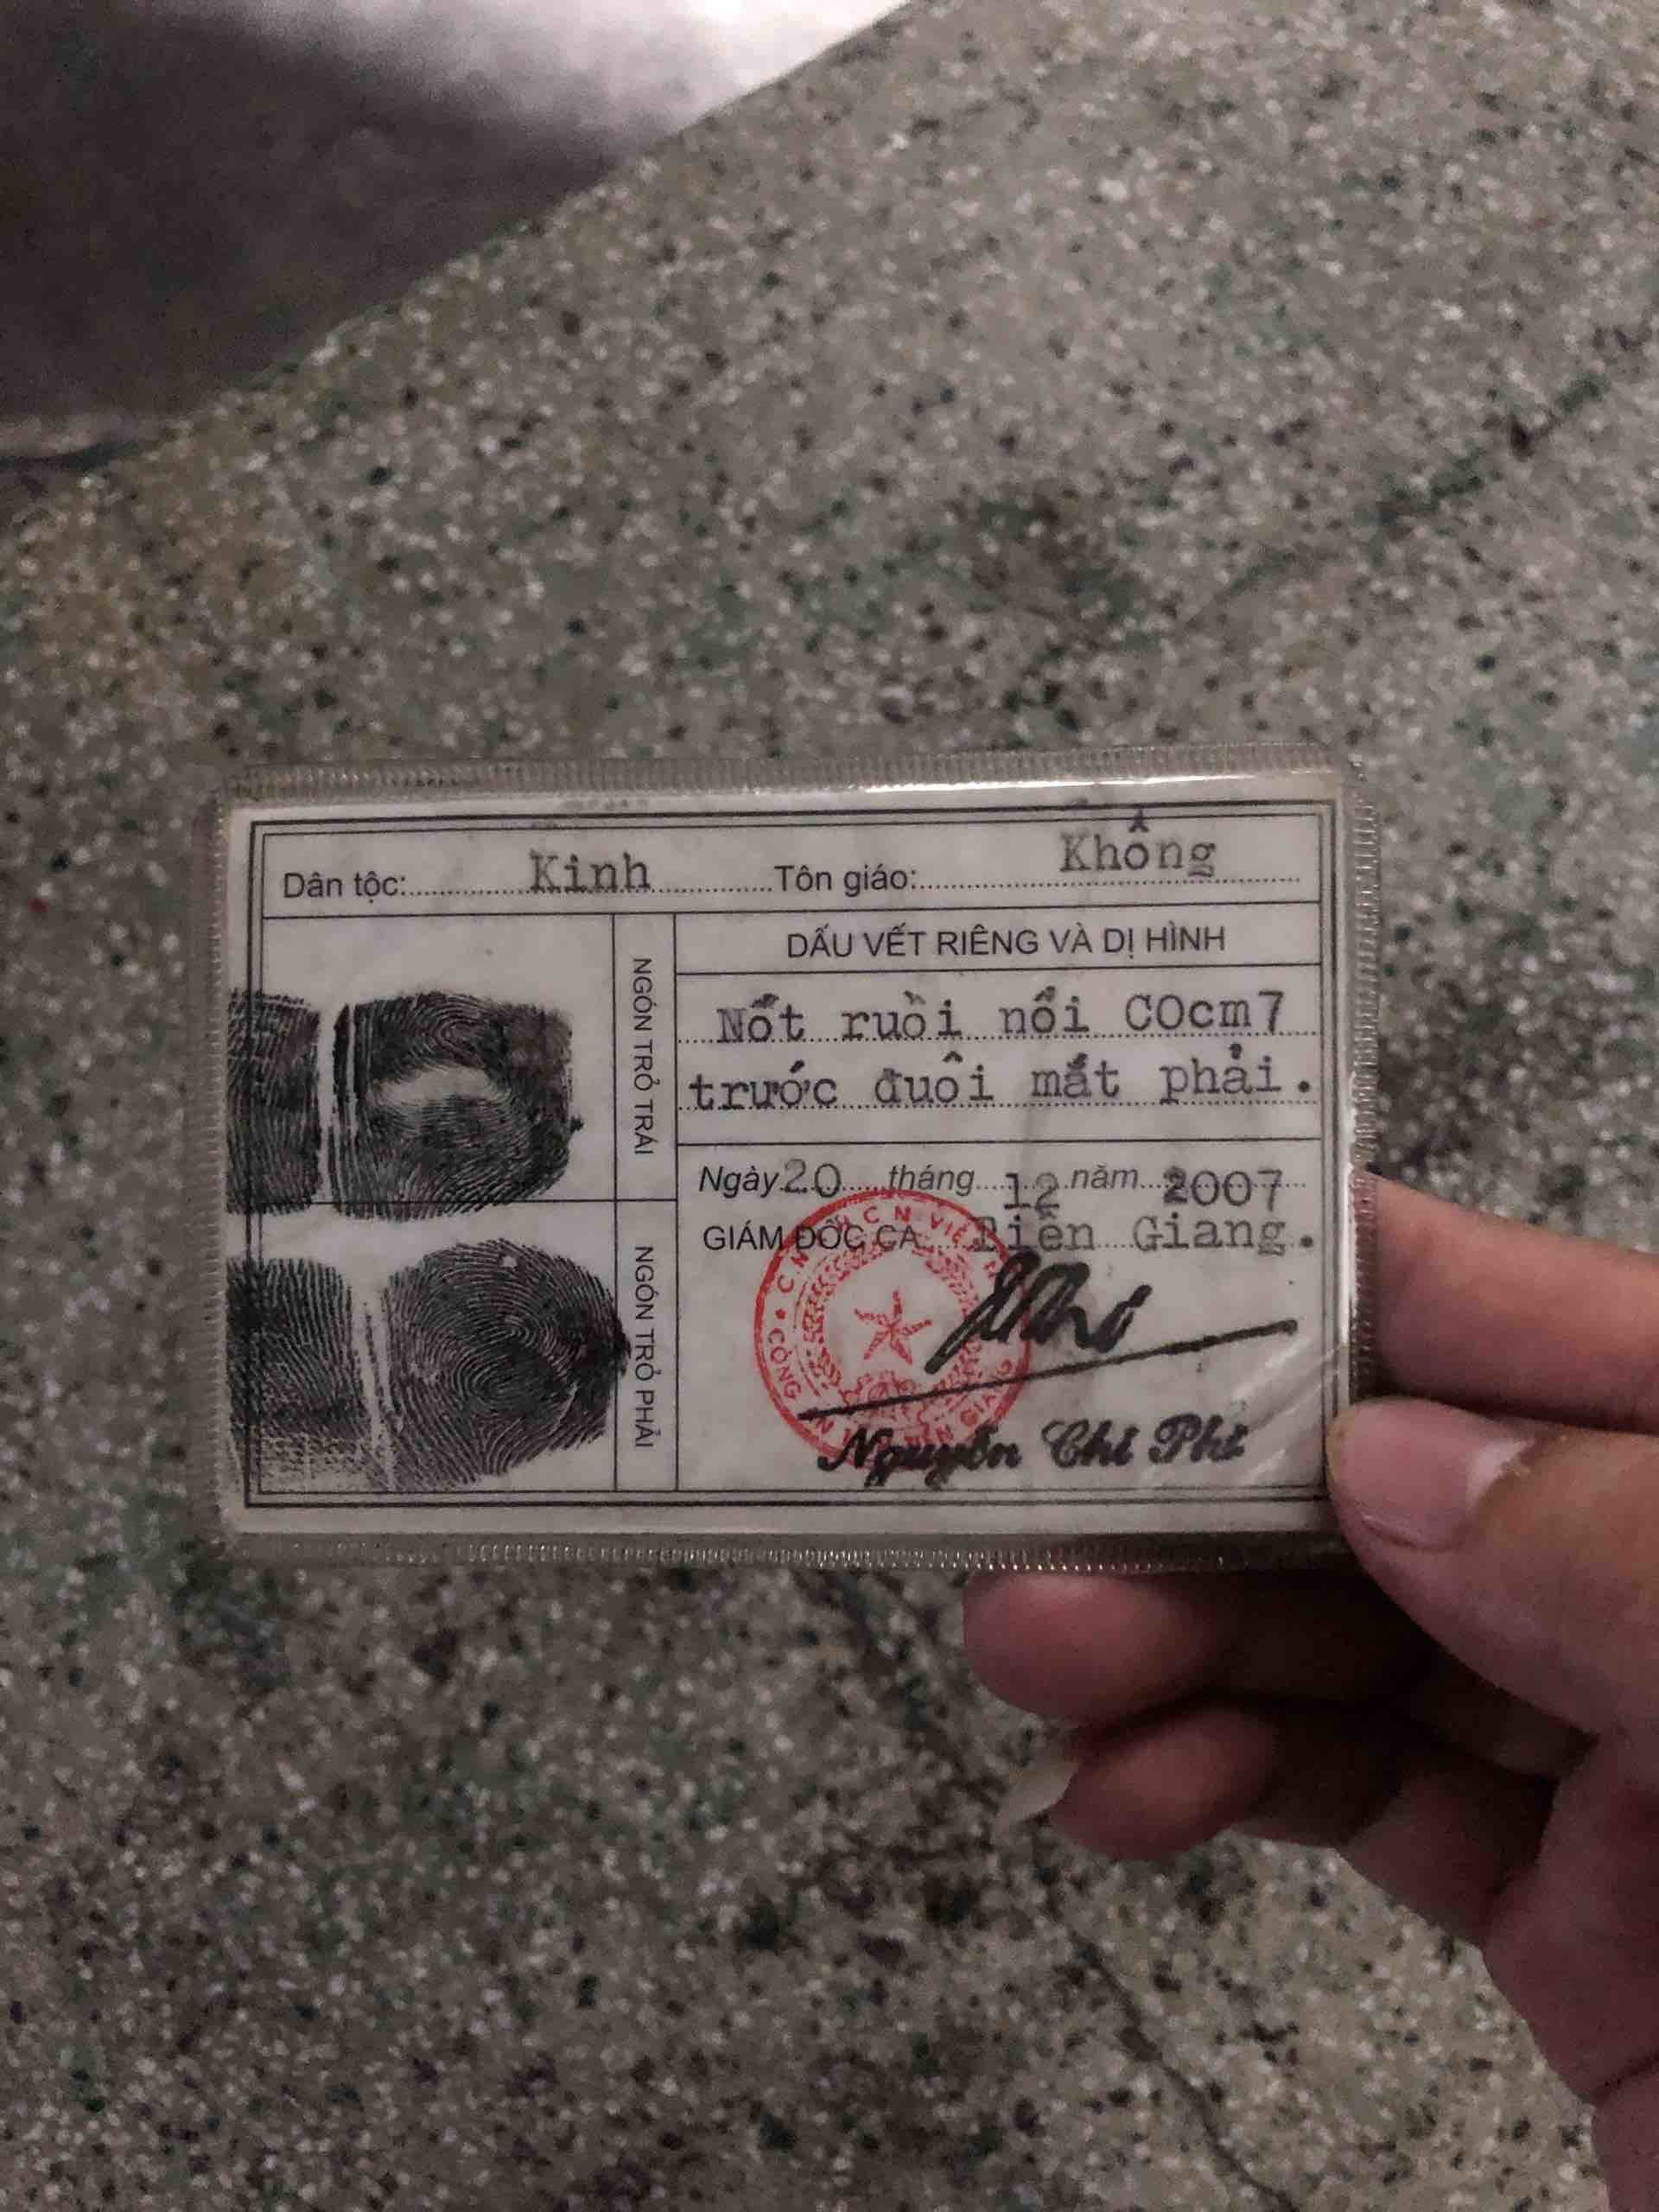 Dân tộc: Kinh Tôn giáo: Không
NGÓN TRỎ TRÁI
DẤU VẾT RIÊNG VÀ DỊ HÌNH
Nốt ruồi nổi C0cm7
trước đuôi mắt phải.
NGÓN TRỎ PHẢI
Ngày 20 tháng 12 năm 2007
GIÁM ĐỐC CA Tiền Giang.
Nguyễn Chí Phi